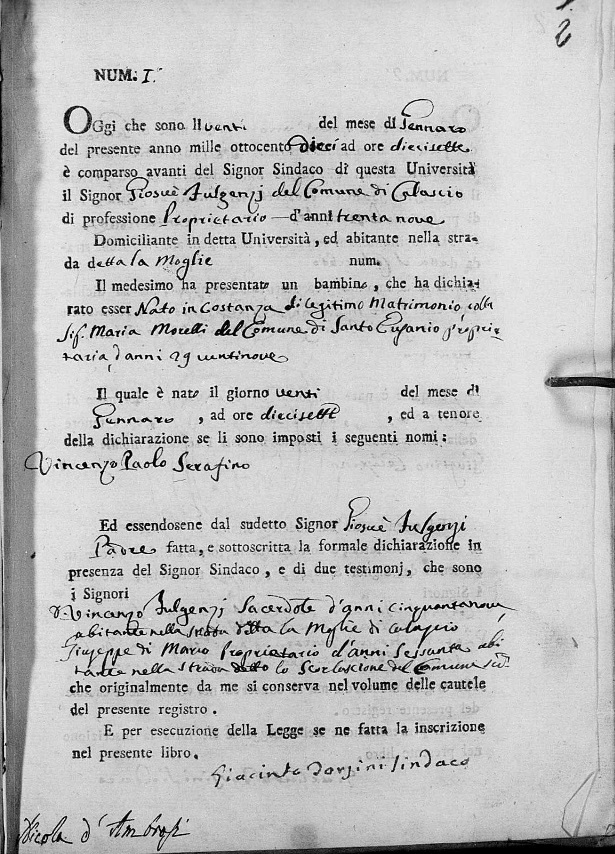 NUM. I.
OGgi che sono li venti del mese di Gennaro
del presente anno mille ottocento dieci ad ore diecisette
è comparso avanti del Signor Sindaco di questa Università
il Signor Giosuè Fulgenzj del Comune di Calascio
di professione Proprietario d'anni trenta nove
Domiciliante in detta Università, ed abitante nella stra-
da detta la Moglie num.
Il medesimo ha presentato un bambino, che ha dichia-
rato esser Nato in Costanza di legitimo Matrimonio colla
Sig. Maria Morelli del Comune di Santo Eusanio proprie-
taria, d'anni 29 ventinove
Il quale è nato il giorno venti del mese di
Gennaro, ad ore diecisette, ed a tenore
della dichiarazione se li sono imposti i seguenti nomi:
Vincenzo Paolo Serafino
Ed essendosene dal sudetto Signor Giosuè Fulgenzj
Padre fatta, e sottoscritta la formale dichiarazione in
presenza del Signor Sindaco, e di due testimonj, che sono
i Signori
D. Vincenzo Fulgenzj Sacerdote d'anni cinquantanove
abitante nella strada detta la Moglie di Calascio
Giuseppe di Mario Proprietario d'anni Sessanta abi
tante nella strada detto lo del Comune
che originalmente da me si conserva nel volume delle cautele
del presente registro.
E per esecuzione della Legge se ne fatta la inscrizione
nel presente libro.
Giacinto Sindaco
Nicola d'Ambrosj